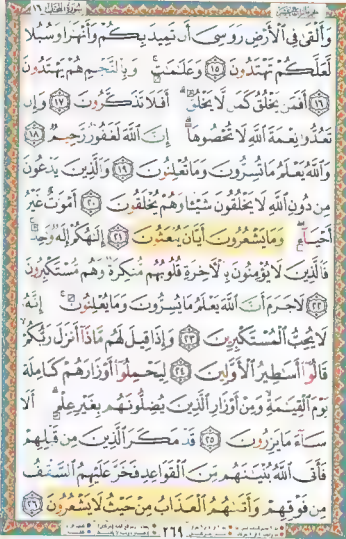 سُورَةُ النَّحْلِ ١٦
وَأَلْقَىٰ فِى ٱلْأَرْضِ رَوَٰسِىَ أَن تَمِيدَ بِكُمْ وَأَنْهَٰرًا وَسُبُلًا
لَّعَلَّكُمْ تَهْتَدُونَ ١٥ وَعَلَٰمَٰتٍ وَبِٱلنَّجْمِ هُمْ يَهْتَدُونَ
١٦ أَفَمَن يَخْلُقُ كَمَن لَّا يَخْلُقُ أَفَلَا تَذَكَّرُونَ ١٧ وَإِن
تَعُدُّوا۟ نِعْمَةَ ٱللَّهِ لَا تُحْصُوهَا إِنَّ ٱللَّهَ لَغَفُورٌ رَّحِيمٌ ١٨
وَٱللَّهُ يَعْلَمُ مَا تُسِرُّونَ وَمَا تُعْلِنُونَ ١٩ وَٱلَّذِينَ يَدْعُونَ
مِن دُونِ ٱللَّهِ لَا يَخْلُقُونَ شَيْـًٔا وَهُمْ يُخْلَقُونَ ٢٠ أَمْوَٰتٌ غَيْرُ
أَحْيَآءٍ وَمَا يَشْعُرُونَ أَيَّانَ يُبْعَثُونَ ٢١ إِلَٰهُكُمْ إِلَٰهٌ وَٰحِدٌ
فَٱلَّذِينَ لَا يُؤْمِنُونَ بِٱلْأَخِرَةِ قُلُوبُهُم مُّنكِرَةٌ وَهُم مُّسْتَكْبِرُونَ
٢٢ لَا جَرَمَ أَنَّ ٱللَّهَ يَعْلَمُ مَا يُسِرُّونَ وَمَا يُعْلِنُونَ إِنَّهُۥ
لَا يُحِبُّ ٱلْمُسْتَكْبِرِينَ ٢٣ وَإِذَا قِيلَ لَهُم مَّاذَآ أَنزَلَ رَبُّكُمْ
قَالُوٓا۟ أَسَٰطِيرُ ٱلْأَوَّلِينَ ٢٤ لِيَحْمِلُوٓا۟ أَوْزَارَهُمْ كَامِلَةً
يَوْمَ ٱلْقِيَٰمَةِ وَمِنْ أَوْزَارِ ٱلَّذِينَ يُضِلُّونَهُم بِغَيْرِ عِلْمٍ أَلَا
سَآءَ مَا يَزِرُونَ ٢٥ قَدْ مَكَرَ ٱلَّذِينَ مِن قَبْلِهِمْ
فَأَتَى ٱللَّهُ بُنْيَٰنَهُم مِّنَ ٱلْقَوَاعِدِ فَخَرَّ عَلَيْهِمُ ٱلسَّقْفُ
مِن فَوْقِهِمْ وَأَتَىٰهُمُ ٱلْعَذَابُ مِنْ حَيْثُ لَا يَشْعُرُونَ ٢٦
٢٦٩